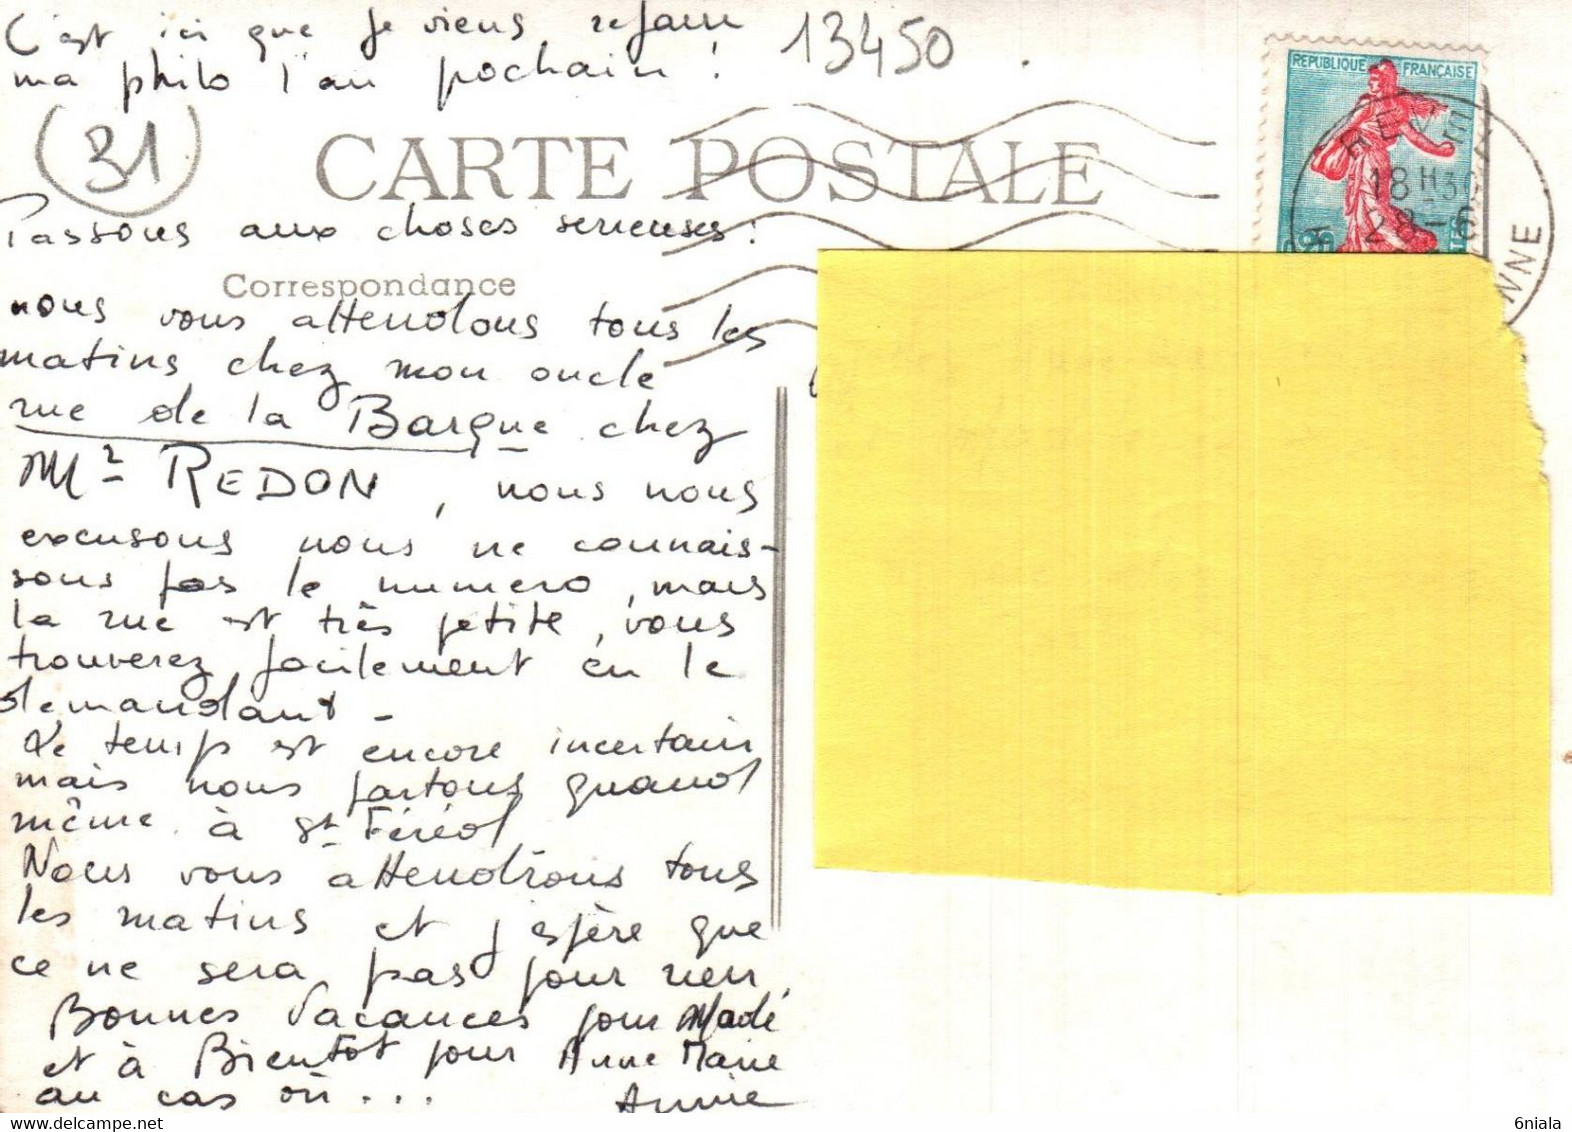 C'est ici que je viens refaire
ma philo l'an pochain !
13450
31
CARTE POSTALE
REPUBLIQUE FRANÇAISE
REVEL
18 H 3
28-6
NNE
Passons aux choses serieuses :
Correspondance
nous vous attendons tous les
matins chez mon oncle
rue de la Barque chez
Mr REDON, nous nous
excusons nous ne connais-
sons pas le numero, mais
la rue est très petite, vous
trouverez facilement en le
demandant -
Le temps est encore incertain
mais nous partons quand
même à St Féréol
Nous vous attendrons tous
les matins et j'espère que
ce ne sera pas pour rien,
Bonnes Vacances pour Madé
et à Bientôt pour Anne Marie
au cas où ...
Annie
6niala